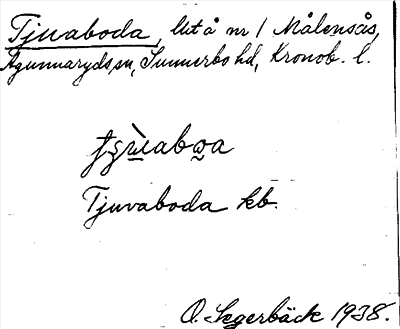 Tjuaboda, lht å nr 1 Målensås,
Agunnaryds sn, Sunnerbo hd, Kronob. l.
Tjuvaboda kb.
O. Segerbäck 1938.